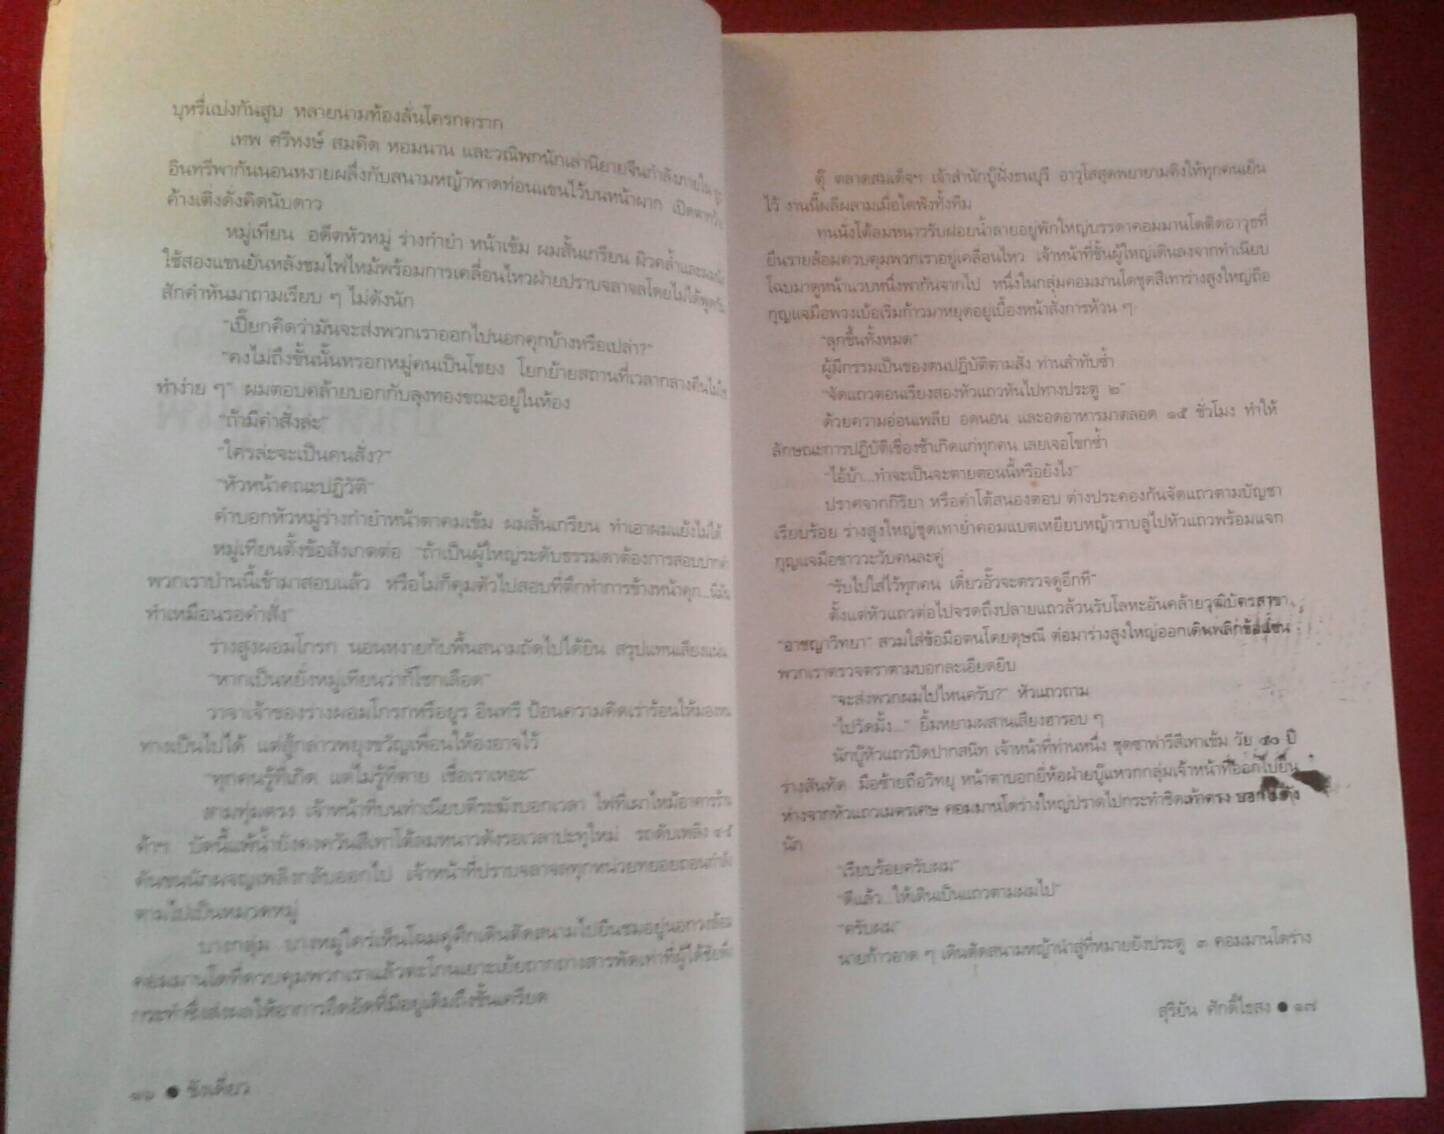 บุหรี่แบ่งกันสูบ หลายนามท้องลั่นโครกคราก
เทพ ศรีหงษ์ สมคิด หอมนาน และวณิพกนักเล่านิยายจีนกำลังภายใน
อินทรีพากันนอนหงายผลึ่งกับสนามหญ้าพาดท่อนแขนไว้บนหน้าผาก เปิดตา
ค้างเติ่งดั่งคิดนับดาว
หมู่เทียน อดีตหัวหมู่ ร่างกำยำ หน้าเข้ม ผมสั้นเกรียน ผิวคล้ำและ
ใช้สองแขนยันหลังชมไฟไหม้พร้อมการเคลื่อนไหวฝ่ายปราบจลาจลโดยไม่ได้พูด
สักคำหันมาถามเรียบ ๆ ไม่ดังนัก
"เปี๊ยกคิดว่ามันจะส่งพวกเราออกไปนอกคุกบ้างหรือเปล่า?"
"คงไม่ถึงขั้นนั้นหรอกหมู่คนเป็นโขยง โยกย้ายสถานที่เวลากลางคืนไม่ใช่
ทำง่าย ๆ" ผมตอบคล้ายบอกกับลุงทองขณะอยู่ในห้อง
"ถ้ามีคำสั่งล่ะ"
"ใครล่ะจะเป็นคนสั่ง?"
"หัวหน้าคณะปฏิวัติ"
คำบอกหัวหมู่ร่างกำยำหน้าตาคมเข้ม ผมสั้นเกรียน ทำเอาผมแย้งไม่ได้
หมู่เทียนตั้งข้อสังเกตต่อ "ถ้าเป็นผู้ใหญ่ระดับธรรมดาต้องการสอบปากคำ
พวกเราป่านนี้เข้ามาสอบแล้ว หรือไม่ก็คุมตัวไปสอบที่ตึกทำการข้างหน้าคุก...นี่มัน
ทำเหมือนรอคำสั่ง"
ร่างสูงผอมโกรก นอนหงายกับพื้นสนามถัดไปได้ยิน สรุปแทนเสียง
"หากเป็นหยั่งหมู่เทียนว่าก็โชกเลือด"
วาจาเจ้าของร่างผอมโกรกหรือยูร อินทรี ป้อนความคิดเร่าร้อนให้มองหน
ทางเป็นไปได้ แต่สู้กลาวพยุงขวัญเพื่อนให้องอาจไว้
"ทุกคนรู้ที่เกิด แต่ไม่รู้ที่ตาย เชื่อเราเหอะ"
สามทุ่มตรง เจ้าหน้าที่บนทำเนียบตีระฆังบอกเวลา ไฟที่เผาไหม้อาคารร้าน
ค้าฯ บัดนี้แพ้น้ำยังคงควันสีเทาโต้ลมหนาวดังรอเวลาปะทุใหม่ รถดับเพลิง ๔-๕
คันขนนักผจญเพลิงกลับออกไป เจ้าหน้าที่ปราบจลาจลทุกหน่วยทยอยถอนกำลัง
ตามไปเป็นหมวดหมู่
บางกลุ่ม บางหมู่ใคร่เห็นโฉมคู่ศึกเดินตัดสนามไปยืนชมอยู่นอกวงล้อม
คอมมานโดที่ควบคุมพวกเราแล้วตะโกนเยาะเย้ยถากถางสารพัดเท่าที่ผู้ได้ชัย
กระทำซึ่งส่งผลให้อาการอึดอัดที่มีอยู่เดิมถึงขั้นเครียด
๑๖ ● ขังเดี่ยว
ตุ๊ ตลาดสมเด็จฯ เจ้าสำนักบู๊ฝั่งธนบุรี อาวุโสสุดพยายามดึงให้ทุกคนเย็น
ไว้ งานนี้ผลีผลามเมื่อใดพังทั้งทีม
ทนนั่งโต้ลมหนาวรับฝอยน้ำลายอยู่พักใหญ่บรรดาคอมมานโดติดอาวุธที่
ยืนรายล้อมควบคุมพวกเราอยู่เคลื่อนไหว เจ้าหน้าที่ชั้นผู้ใหญ่เดินลงจากทำเนียบ
โฉบมาดูหน้าแวบหนึ่งพากันจากไป หนึ่งในกลุ่มคอมมานโดชุดสีเทาร่างสูงใหญ่ถือ
กุญแจมือพวงเบ้อเริ่มก้าวมาหยุดอยู่เบื้องหน้าสั่งการห้วน ๆ
"ลุกขึ้นทั้งหมด"
ผู้มีกรรมเป็นของตนปฏิบัติตามสั่ง ท่านสำทับซ้ำ
"จัดแถวตอนเรียงสองหัวแถวหันไปทางประตู ๒"
ด้วยความอ่อนเพลีย อดนอน และอดอาหารมาตลอด ๑๕ ชั่วโมง ทำให้
ลักษณะการปฏิบัติเชื่องช้าเกิดแก่ทุกคน เลยเจอโขกซ้ำ
"ไอ้บ้า...ทำจะเป็นจะตายตอนนี้หรือยังไง"
ปราศจากกิริยา หรือคำโต้สนองตอบ ต่างประคองกันจัดแถวตามบัญชา
เรียบร้อย ร่างสูงใหญ่ชุดเทาย่ำคอมแบตเหยียบหญ้าราบลู่ไปหัวแถวพร้อมแจก
กุญแจมือขาววะวับคนละคู่
"รับไปใส่ไว้ทุกคน เดี๋ยวอั๊วจะตรวจดูอีกที"
ตั้งแต่หัวแถวต่อไปจรดถึงปลายแถวล้วนรับโลหะอันคล้ายวุฒิบัตรสาขา
"อาชญาวิทยา" สวมใส่ข้อมือตนโดยดุษณี ต่อมาร่างสูงใหญ่ออกเดินพลิกข้อมือ
พวกเราตรวจตราตามบอกละเอียดยิบ
"จะส่งพวกผมไปไหนครับ?" หัวแถวถาม
"ไปวัดมั้ง..." ยิ้มหยามผสานเสียงฮารอบ ๆ
นักบู๊หัวแถวปิดปากสนิท เจ้าหน้าที่ท่านหนึ่ง ชุดซาฟารีสีเทาเข้ม วัย ๕๐ ปี
ร่างสันทัด มือซ้ายถือวิทยุ หน้าตาบอกยี่ห้อฝ่ายบู๊แหวกกลุ่มเจ้าหน้าที่ออกไปยืน
ห่างจากหัวแถวเมตรเศษ คอมมานโดร่างใหญ่ปราดไปกระทำชิดเท้าตรง บอกไม่ดัง
นัก
"เรียบร้อยครับผม"
"ดีแล้ว...ให้เดินเป็นแถวตามผมไป"
"ครับผม"
นายก้าวอาด ๆ เดินตัดสนามหญ้านำสู่ที่หมายยังประตู ๓ คอมมานโดร่าง
สุริยัน ศักดิ์ไธสง ● ๑๗